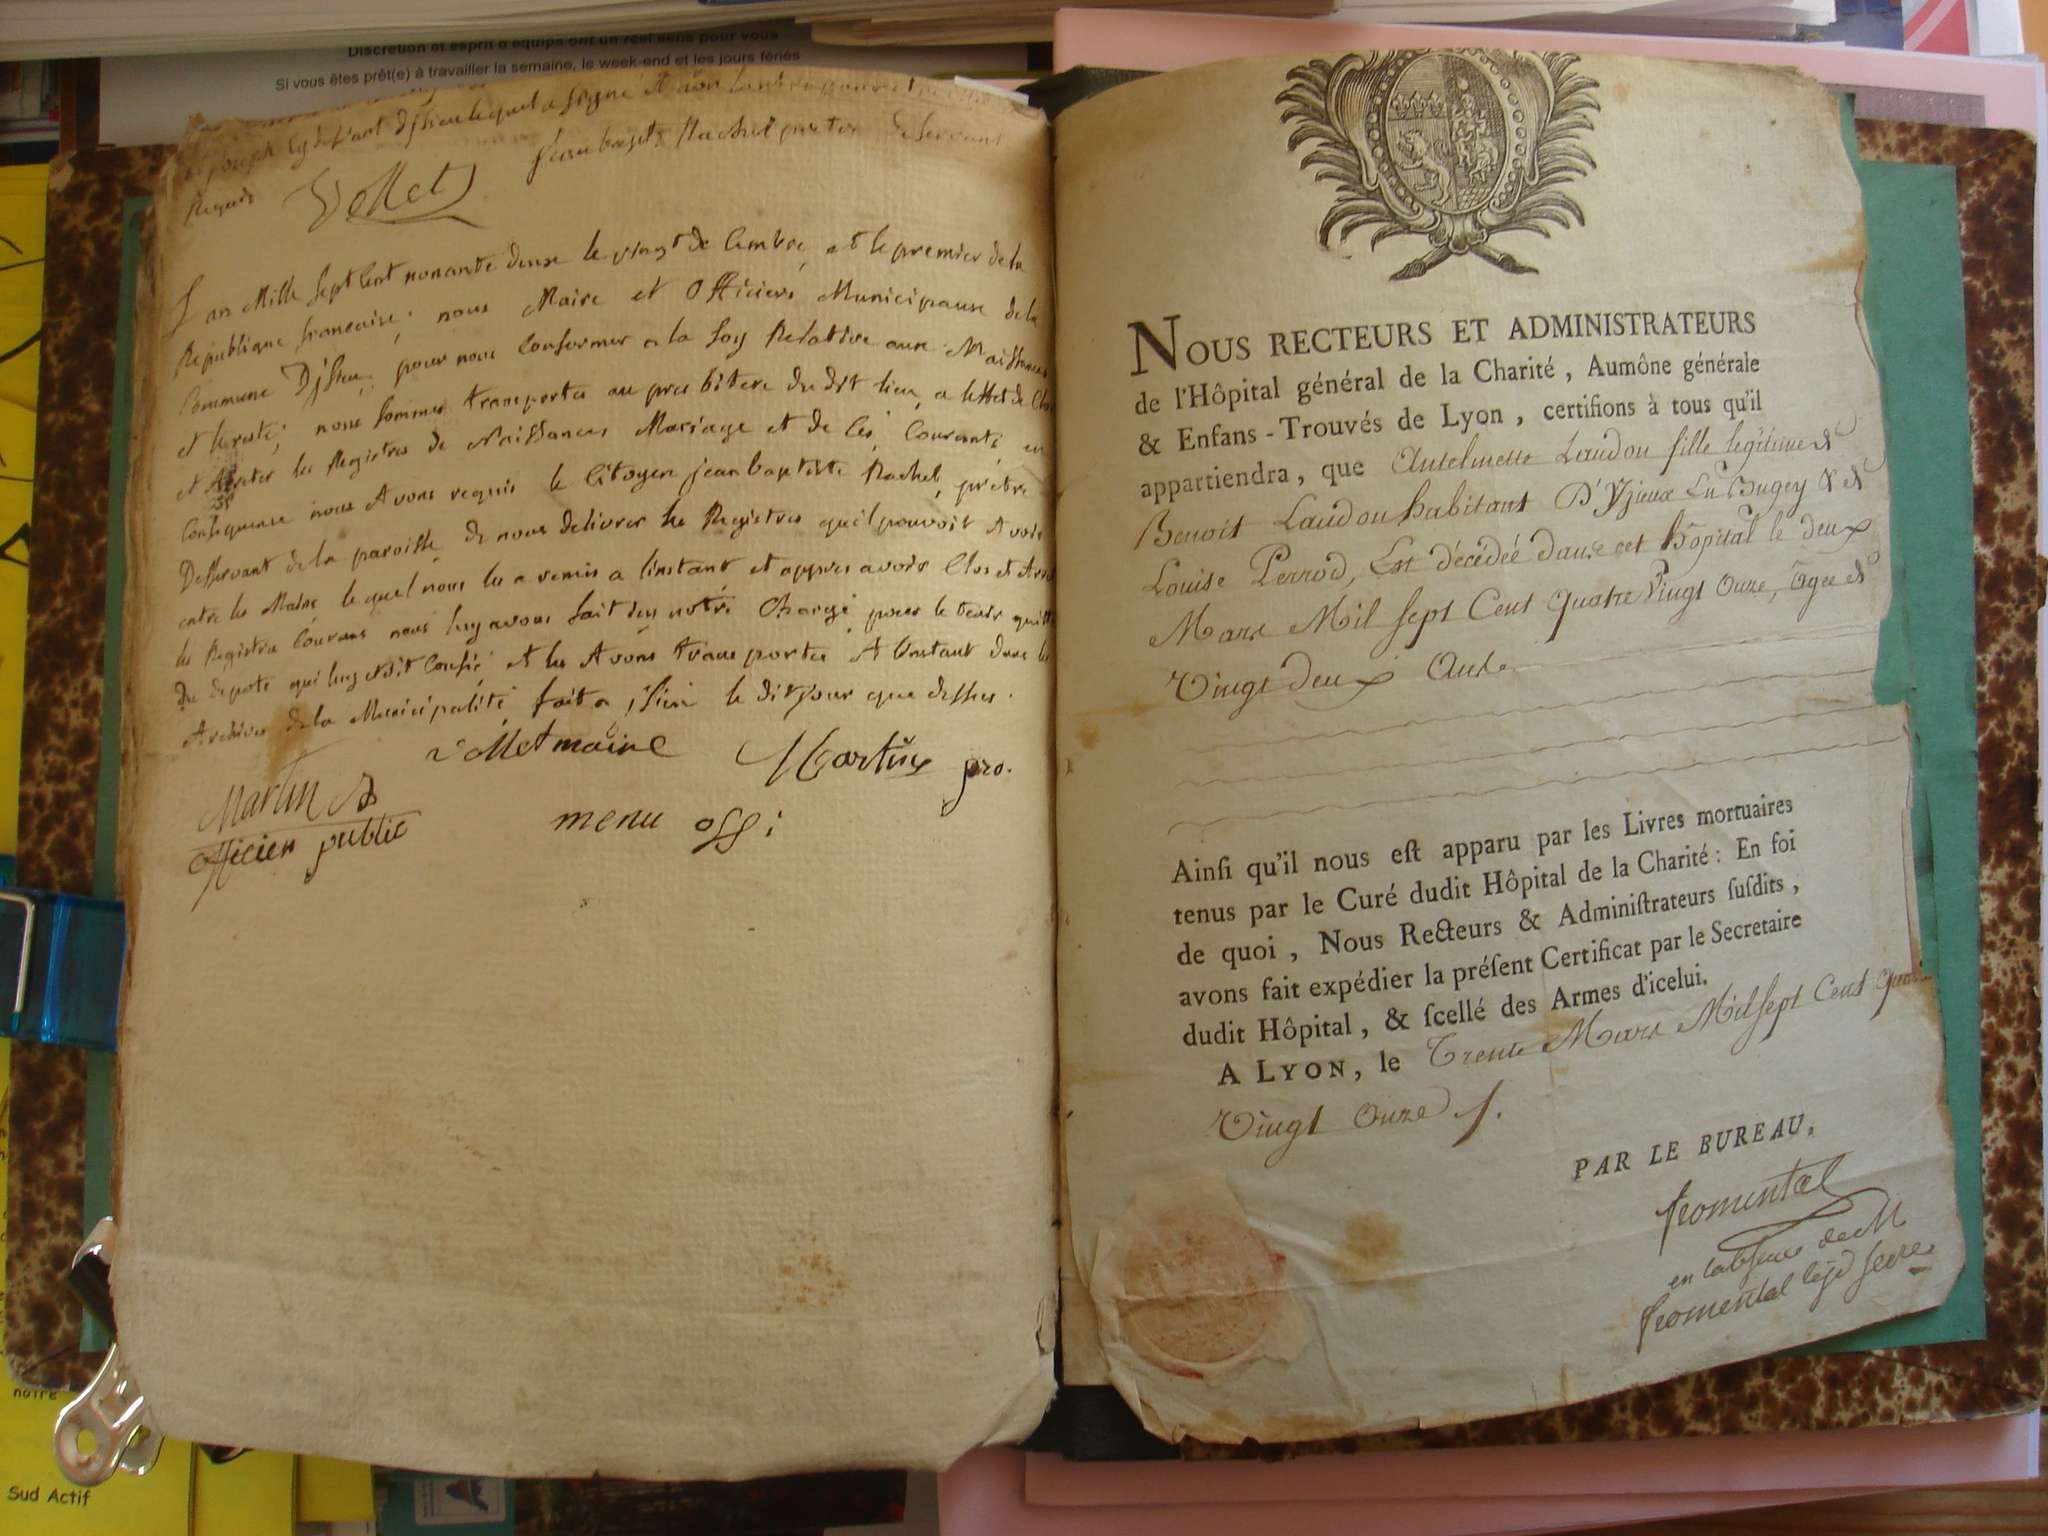 Discretion et esprit d'équipe ont un réel sens pour vous
Si vous êtes prêt(e) à travailler la semaine, le week-end et les jours fériés
lequel a signé et non
Rachel
Vollet
L'an Mille Sept Cent nonante deux le vingt decembre et le premier de la
Republique francaise, nous Maire et Officiers Municipaux de la
Commune Disieu, pour nous Conformer a la Loy Relative aux Naissances
et le reste, nous sommes transportés au presbitere du dit lieu, a leffet de Clore
et Arreter les Registres de Naissances Mariage et de Cés, Courants, en
Consequence nous Avons requis le Citoyen jean baptiste Rachel, prêtre
Desservant de la paroisse, de nous delivrer les Registres qu'il pouvoit Avoir
entre les Mains, lequel nous les a remis a l'instant et appres avoir Clos et
les Registres Courans nous
du depots qui luy etoit Confié et les Avons transportés A l'instant dans les
Archives de la Municipalité fait a isieu le dit jour que dessus.
vollet maire Martin pro.
Martin
officier public
menu offi
NOUS RECTEURS ET ADMINISTRATEURS
de l'Hôpital général de la Charité, Aumône générale
& Enfans-Trouvés de Lyon, certifions à tous qu'il
appartiendra, que Antelmette Laudon fille legitime de
Benoit Laudon habitant D'Yzieux En Bugey & de
Louise Perrod, Est décédée dans cet hôpital le deux
Mars Mil sept Cent Quatre Vingt Onze, agée de
Vingt deux Ans.
Ainſi qu'il nous eſt apparu par les Livres mortuaires
tenus par le Curé dudit Hôpital de la Charité : En foi
de quoi, Nous Recteurs & Adminiſtrateurs ſuſdits,
avons fait expédier la préſent Certificat par le Secretaire
dudit Hôpital, & ſcellé des Armes d'icelui.
A LYON, le Trente Mars Mil sept Cent Quatre
Vingt Onze
PAR LE BUREAU,
fromental
en labsence de M
fromental
notre
Sud Actif